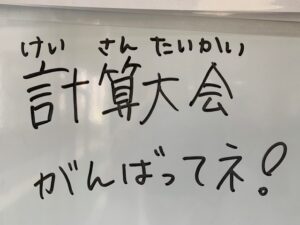 けい さん たいかい
計算大会
がんばってネ!